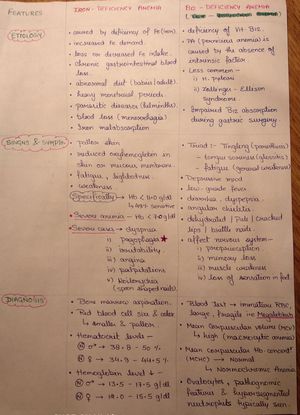 FEATURES
IRON - DEFICIENCY ANEMIA
B12 - DEFICIENCY ANEMIA
ETIOLOGY
• caused by deficiency of Fe (iron).
• increased Fe demand.
• loss or decreased Fe intake.
• chronic gastrointestinal blood
loss.
• abnormal diet (babies/adult).
• heavy menstrual periods.
• parasitic diseases (helminths)
• blood loss
• Iron malabsorption
• deficiency of Vit-B12.
• PA (pernicious anemia) is caused
by the absence of
intrinsic factor.
• Less common -
i) H. pylori
ii) Zollinger - Ellison
Syndrome
• Impaired B12 absorption
during gastric surgery
SIGNS & SYMPT.
• pallor skin
• reduced oxyhemoglobin in
skin or mucous membrane.
• fatigue,
• weakness
Specifically → Hb < 110 g/dl
Severe anemia - Hb <
Severe cases → dyspnea
i) pagophagia ★
ii) irritability
iii) angina
iv) palpitations
v) Koilonychia
(spoon shaped nails)
• Triad : Tingling (paresthesia)
- tongue soreness (glossitis)
- fatigue (general weakness)
• Depressive mood
• low-grade fever.
• diarrhea, dyspepsia
angular cheilitis
• dehydrated / Pale / Cracked
lips / brittle nails.
• affect nervous system -
i) proprioception
ii) memory loss
iii) muscle weakness
iv) loss of sensation in feet
DIAGNOSIS
• Bone marrow aspiration.
• Red blood cell size & color
↳ smaller & paler
• Hematocrit levels -
(N) ♂ → 38.8 - 50 %
(N) ♀ → 34.9 - 44.5 %
• Hemoglobin level ↓ -
(N) ♂ → 13.5 - 17.5 g/dl
(N) ♀ → 12.0 - 15.5 g/dl
• Blood Test → immature RBC,
large, fragile i.e Megaloblasts
• Mean corpuscular volume (MCV)
↳ high (macrocytic anemia)
• Mean corpuscular Hb concent
(MCHC) → Normal
↳ Normochromic Anemia
• Ovalocytes, pathognomic
features & hypersegmented
neutrophils typically seen.